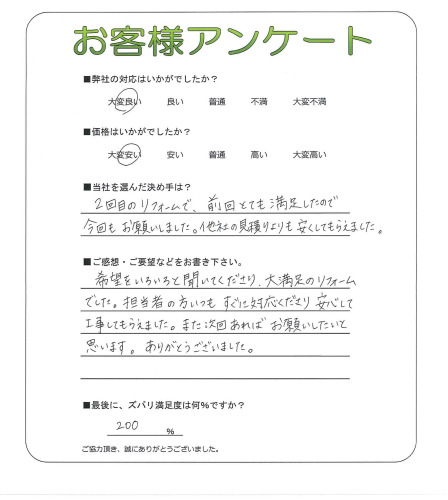 お客様アンケート
■弊社の対応はいかがでしたか?
大変良い 良い 普通 不満 大変不満
■価格はいかがでしたか?
大変安い 安い 普通 高い 大変高い
■当社を選んだ決め手は?
2回目のリフォームで、前回とても満足したので
今回もお願いしました。他社の見積りよりも安くしてもらえました。
■ご感想・ご要望などをお書き下さい。
希望をいろいろと聞いてくださり、大満足のリフォーム
でした。担当者の方いつもすぐに対応くださり安心して
工事してもらえました。また次回あればお願いしたいと
思います。ありがとうございました。
■最後に、ズバリ満足度は何%ですか?
200 %
ご協力頂き、誠にありがとうございました。